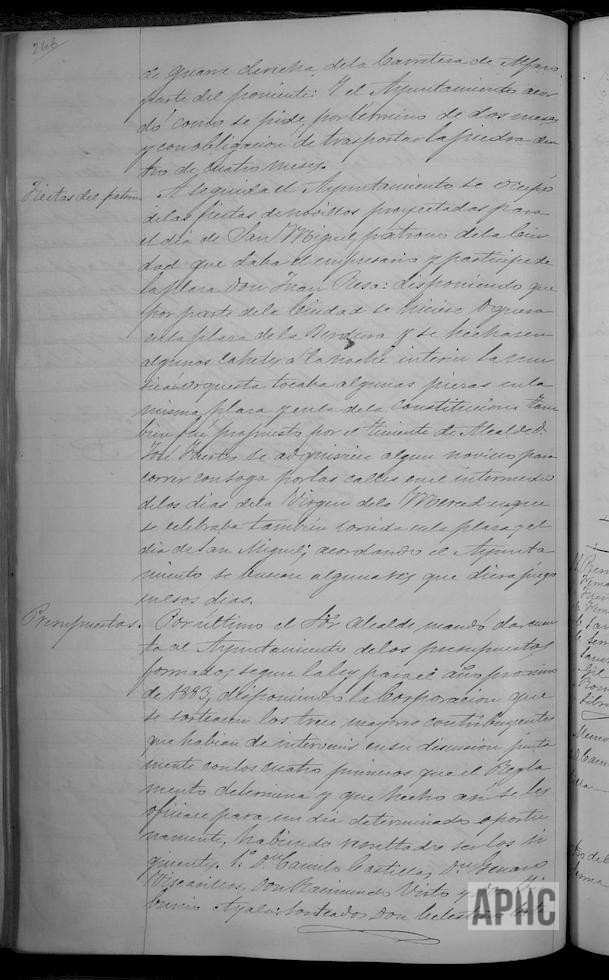 246
de guarra derecha, de la Carretera de Alfaro
parte del poniente: Y el Ayuntamiento acor
dó como se pide, por término de dos meses,
y con obligacion de trasportar la piedra den
tro de cuatro meses.
Fiestas del patron. A seguida el Ayuntamiento se ocupó
de las fiestas de novillos proyectadas para
el dia de San Miguel patrono de la Ciu
dad que daba el empresario y participe de
la plaza Don Juan Resa: disponiendo que
por parte de la Ciudad se hiciese hoguera
en la plaza de la Verdura y se hechasen
algunos cohetes a la noche interin la mu
sica u orquesta tocaba algunas piezas en la
misma plaza y en la de la Constitucion: tam
bien fué propuesto por el Teniente de Alcalde D.
José Fuertes se adquiriese algun novillo para
correr con soga por las calles en el intermedio
de los dias de la Virgen de la Merced en que
se celebraba tambien corrida en la plaza, y el
dia de San Miguel; acordando el Ayunta
miento se buscase alguna res que diera juego
en esos dias.
Presupuestos. Por ultimo el Sor. Alcalde mandó dar cuen
ta al Ayuntamiento de los presupuestos
formados segun la ley para el año proximo
de 1883, disponiendo la Corporacion que
se sorteasen los trece mayores contribuyentes
que habian de intervenir en su discusion junta
mente con los cuatro primeros que el Regla
mento determina y que hecho asi se les
oficiase para un dia determinado oportu
namente, habiendo resultado ser los si
guientes. 1º Dn. Camilo Castilla, Dn. Genaro
Don Raimundo Visto y
burcio Ayala: sorteados Don Celestino
APHC